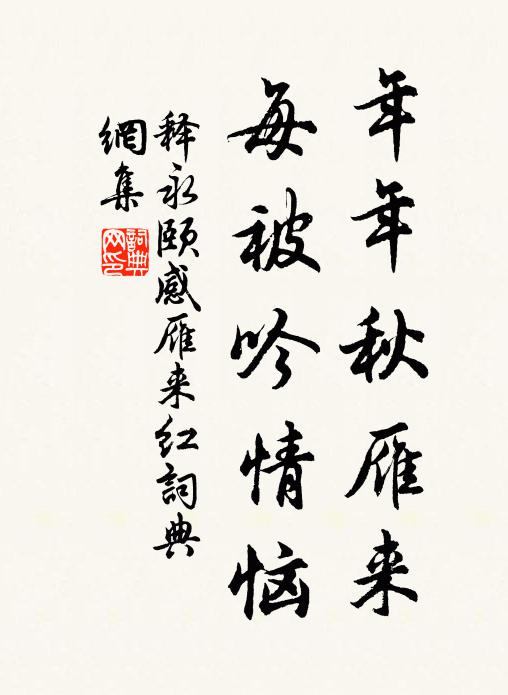 年年秋雁来
每被吟情恼
释永颐感雁来红詞典
網集
詞典
网印